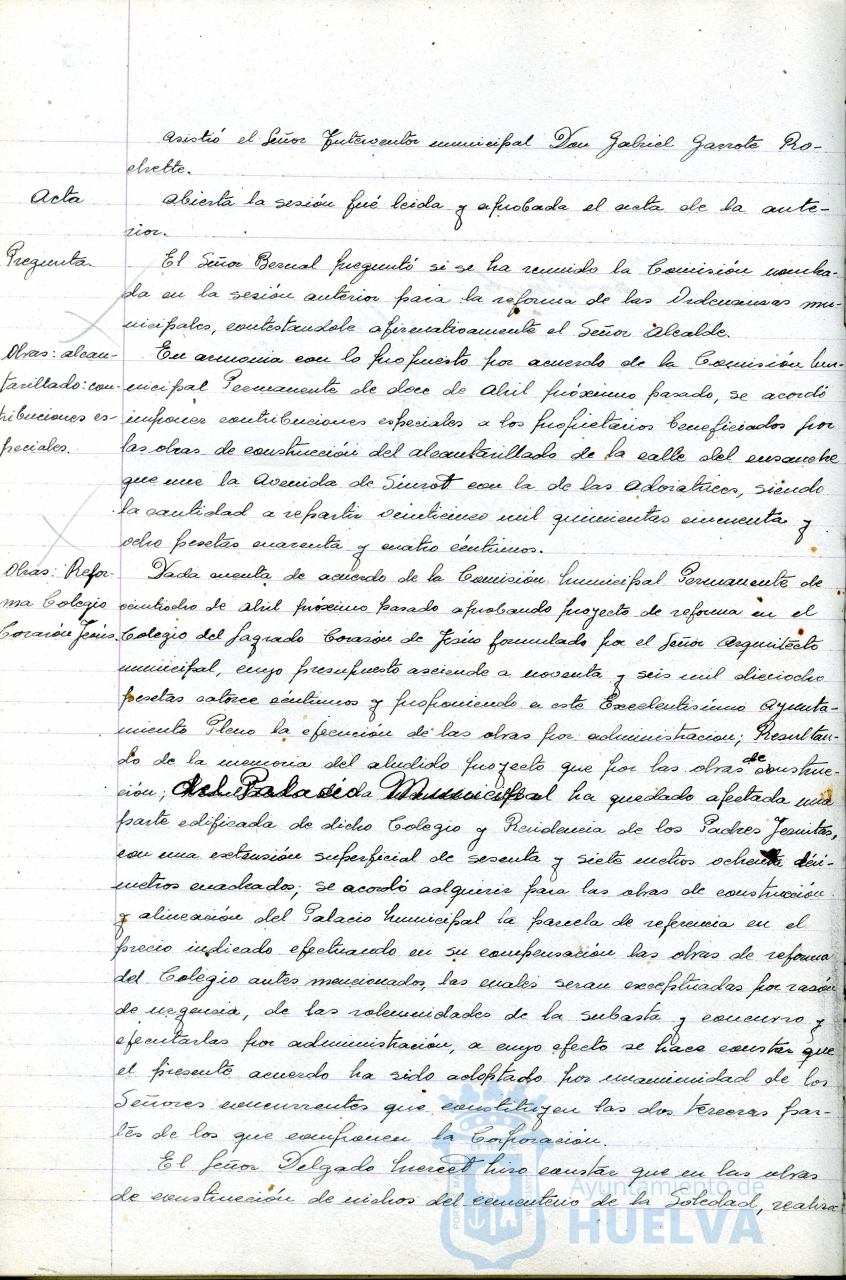 asistió el Señor Interventor municipal Don Gabriel Garrote Ro-
chette.
Acta
Abierta la sesión fué leida y aprobada el acta de la ante-
rior.
Pregunta.
El Señor Bernal preguntó si se ha reunido la Comisión nombra-
da en la sesión anterior para la reforma de las Ordenanzas mu-
nicipales, contestandole afirmativamente el Señor Alcalde.
Obras: alcan-
tarillado: con-
tribuciones es-
peciales.
En armonia con lo propuesto por acuerdo de la Comisión Mu-
nicipal Permanente de doce de Abril próximo pasado, se acordó
imponer contribuciones especiales a los propietarios beneficiados por
las obras de construcción del alcantarillado de la calle del ensanche
que une la Avenida de Siurot con la de las Adoratrices, siendo
la cantidad a repartir veinticinco mil quinientas cincuenta y
ocho pesetas cuarenta y cuatro céntimos.
Obras: Refor-
ma Colegio
Corazón Jesús.
Dada cuenta de acuerdo de la Comisión Municipal Permanente de
veintiocho de Abril próximo pasado aprobando proyecto de reforma en el
Colegio del Sagrado Corazón de Jesús formulado por el Señor Arquitecto
municipal, cuyo presupuesto asciende a noventa y seis mil dieciocho
pesetas catorce céntimos y proponiendo a este Excelentísimo Ayunta-
miento Pleno la ejecución de las obras por administracion; Resultan-
do de la memoria del aludido proyecto que por las obras de construc-
ción; del Palacio Municipal ha quedado afectada una
parte edificada de dicho Colegio y Residencia de los Padres Jesuitas,
con una extensión superficial de sesenta y siete metros ochenta deci-
metros cuadrados; se acordó adquirir para las obras de construcción
y alineación del Palacio Municipal la parcela de referencia en el
precio indicado efectuando en su compensación las obras de reforma
del Colegio antes mencionados, las cuales seran exceptuadas por razón
de urgencia, de las solemnidades de la subasta y concurso y
ejecutarlas por administración, a cuyo efecto se hace constar que
el presente acuerdo ha sido adoptado por unanimidad de los
Señores concurrentes que constituyen las dos terceras par-
tes de los que componen la Corporación.
El Señor Delgado Merced hizo constar que en las obras
de construcción de nichos del cementerio de la Soledad, realiza-
Ayuntamiento de
HUELVA